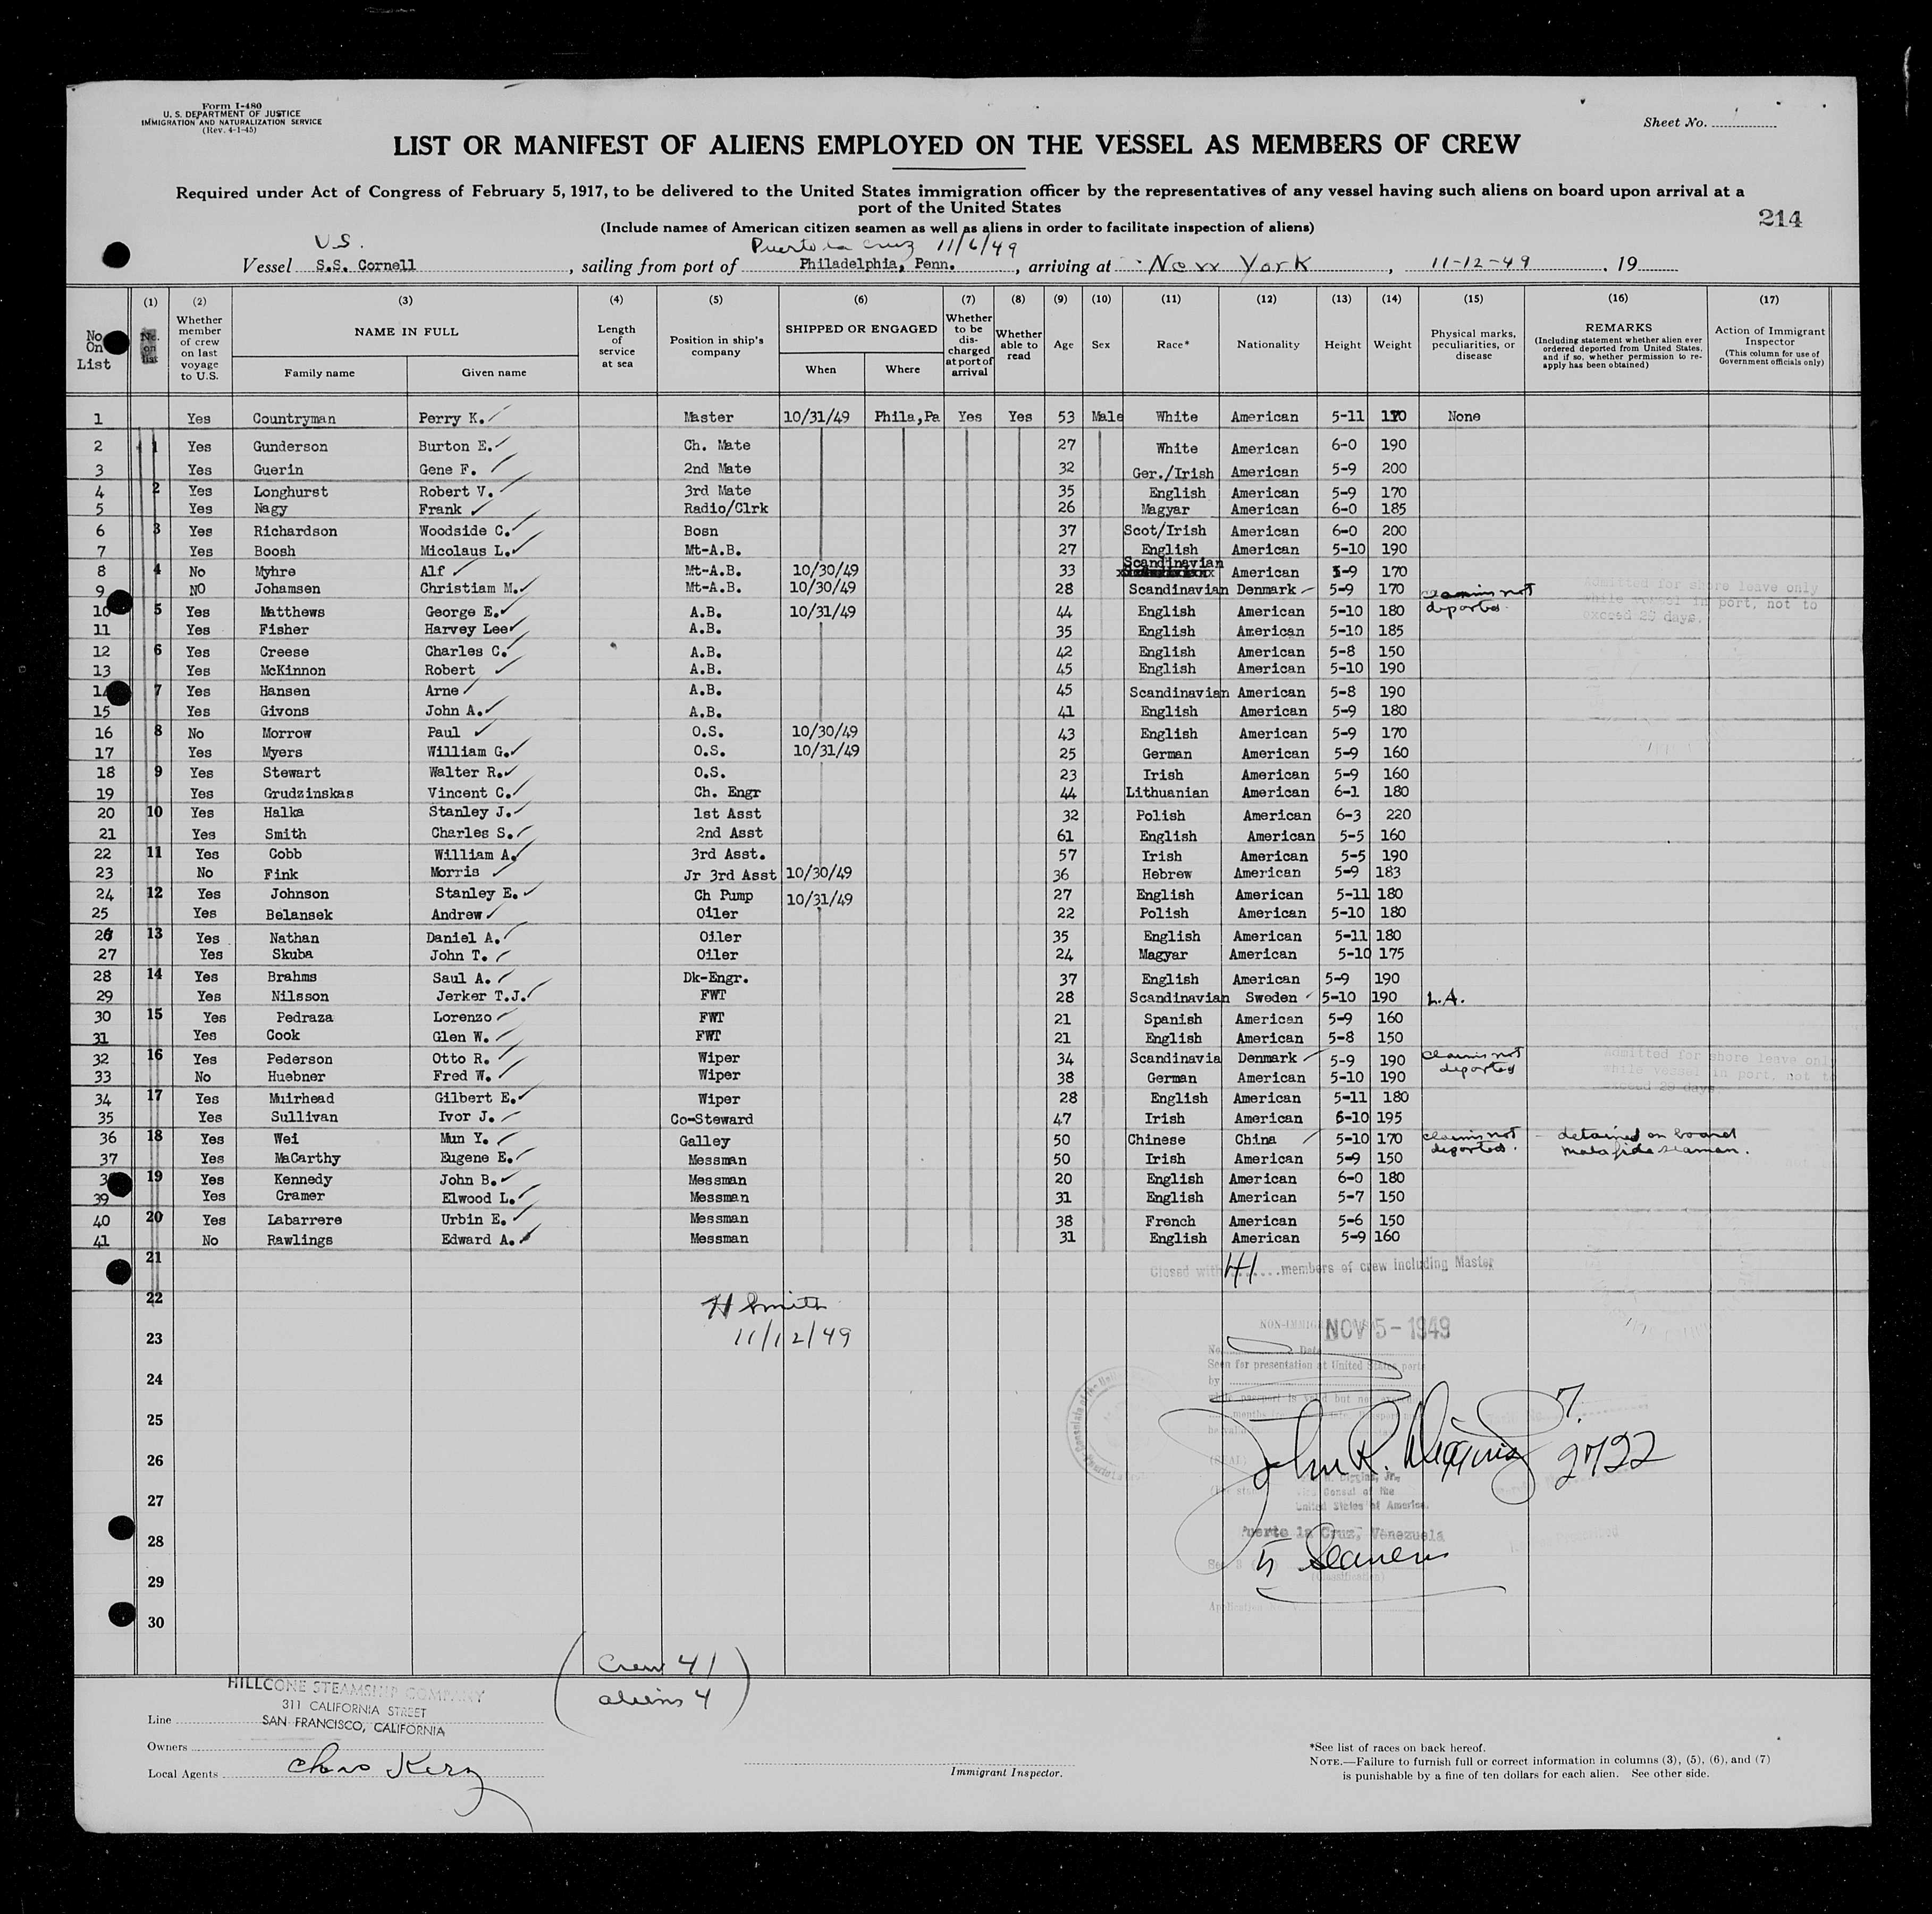 Form I-480
U. S. DEPARTMENT OF JUSTICE
IMMIGRATION AND NATURALIZATION SERVICE
(Rev. 4-1-45)
Sheet No.
LIST OR MANIFEST OF ALIENS EMPLOYED ON THE VESSEL AS MEMBERS OF CREW
Required under Act of Congress of February 5, 1917, to be delivered to the United States immigration officer by the representatives of any vessel having such aliens on board upon arrival at a
port of the United States
(Include names of American citizen seamen as well as aliens in order to facilitate inspection of aliens)
214
U.S. Puerto la Cruz 11/6/49
Vessel S.S. Cornell, sailing from port of Philadelphia, Penn., arriving at New York, 11-12-49, 19
No. On List
(1) No. on list
(2) Whether member of crew on last voyage to U.S.
(3) NAME IN FULL Family name Given name
(4) Length of service at sea
(5) Position in ship's company
(6) SHIPPED OR ENGAGED When Where
(7) Whether to be discharged at port of arrival
(8) Whether able to read
(9) Age
(10) Sex
(11) Race*
(12) Nationality
(13) Height
(14) Weight
(15) Physical marks, peculiarities, or disease
(16) REMARKS (Including statement whether alien ever ordered deported from United States, and if so, whether permission to re-apply has been obtained)
(17) Action of Immigrant Inspector (This column for use of Government officials only)
1 Yes Countryman Perry K. Master 10/31/49 Phila,Pa Yes Yes 53 Male White American 5-11 None
2 1 Yes Gunderson Burton E. Ch. Mate 27 White American 6-0 190
3 Yes Guerin Gene F. 2nd Mate 32 Ger./Irish American 5-9 200
4 2 Yes Longhurst Robert V. 3rd Mate 35 English American 5-9 170
5 Yes Nagy Frank Radio/Clrk 26 Magyar American 6-0 185
6 3 Yes Richardson Woodside C. Bosn 37 Scot/Irish American 6-0 200
7 Yes Boosh Micolaus L. Mt-A.B. 27 English American 5-10 190
8 4 No Myhre Alf Mt-A.B. 10/30/49 33 Scandinavian American 5-9 170
9 NO Johamsen Christiam M. Mt-A.B. 10/30/49 28 Scandinavian Denmark 5-9 170 claims not deported. Admitted for shore leave only while vessel in port, not to exceed 29 days.
10 5 Yes Matthews George E. A.B. 10/31/49 44 English American 5-10 180
11 Yes Fisher Harvey Lee A.B. 35 English American 5-10 185
12 6 Yes Creese Charles C. A.B. 42 English American 5-8 150
13 Yes McKinnon Robert A.B. 45 English American 5-10 190
14 7 Yes Hansen Arne A.B. 45 Scandinavian American 5-8 190
15 Yes Givons John A. A.B. 41 English American 5-9 180
16 8 No Morrow Paul O.S. 10/30/49 43 English American 5-9 170
17 Yes Myers William G. O.S. 10/31/49 25 German American 5-9 160
18 9 Yes Stewart Walter R. O.S. 23 Irish American 5-9 160
19 Yes Grudzinskas Vincent C. Ch. Engr 44 Lithuanian American 6-1 180
20 10 Yes Halka Stanley J. 1st Asst 32 Polish American 6-3 220
21 Yes Smith Charles S. 2nd Asst 61 English American 5-5 160
22 11 Yes Cobb William A. 3rd Asst. 57 Irish American 5-5 190
23 No Fink Morris Jr 3rd Asst 10/30/49 36 Hebrew American 5-9 183
24 12 Yes Johnson Stanley E. Ch Pump 10/31/49 27 English American 5-11 180
25 Yes Belansek Andrew Oiler 22 Polish American 5-10 180
26 13 Yes Nathan Daniel A. Oiler 35 English American 5-11 180
27 Yes Skuba John T. Oiler 24 Magyar American 5-10 175
28 14 Yes Brahms Saul A. Dk-Engr. 37 English American 5-9 190
29 Yes Nilsson Jerker T.J. FWT 28 Scandinavian Sweden 5-10 190 L.A.
30 15 Yes Pedraza Lorenzo FWT 21 Spanish American 5-9 160
31 Yes Cook Glen W. FWT 21 English American 5-8 150
32 16 Yes Pederson Otto R. Wiper 34 Scandinavia Denmark 5-9 190 claims not deported Admitted for shore leave only while vessel in port, not to exceed 29 days
33 No Huebner Fred W. Wiper 38 German American 5-10 190
34 17 Yes Muirhead Gilbert E. Wiper 28 English American 5-11 180
35 Yes Sullivan Ivor J. Co-Steward 47 Irish American 6-10 195
36 18 Yes Wei Mun Y. Galley 50 Chinese China 5-10 170 claims not deported. detained on board mala fide seaman.
37 Yes MaCarthy Eugene E. Messman 50 Irish American 5-9 150
38 19 Yes Kennedy John B. Messman 20 English American 6-0 180
39 Yes Cramer Elwood L. Messman 31 English American 5-7 150
40 20 Yes Labarrere Urbin E. Messman 38 French American 5-6 150
41 No Rawlings Edward A. Messman 31 English American 5-9 160
21
Closed with 41 members of crew including Master
22
H Smith
23
11/12/49
NOV 5 - 1949
No. Date
Seen for presentation at United States ports
by
24
25
26
John R. Diggins Jr.
2722
27
Consul of the
United States of America.
28
Puerto la Cruz, Venezuela
Seamen
(Classification)
29
Application No.
30
(Crew 41
aliens 4)
HILLCONE STEAMSHIP COMPANY
311 CALIFORNIA STREET
SAN FRANCISCO, CALIFORNIA
Line
Owners
Local Agents Chas Kerz
Immigrant Inspector.
*See list of races on back hereof.
NOTE.—Failure to furnish full or correct information in columns (3), (5), (6), and (7)
is punishable by a fine of ten dollars for each alien. See other side.